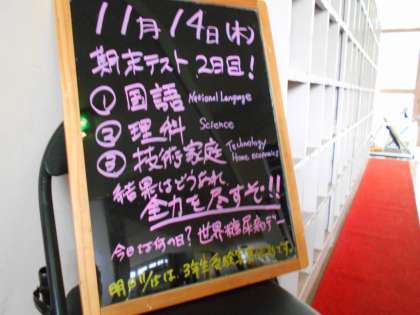 11月14日(木)
期末テスト 2日目!
① 国語 National Language
② 理科 Science
③ 技術家庭 Technology Home economics
結果はどうなれ、
全力を尽すぞ!!
今日は何の日? 世界糖尿病デー
明日11/15は、3年生